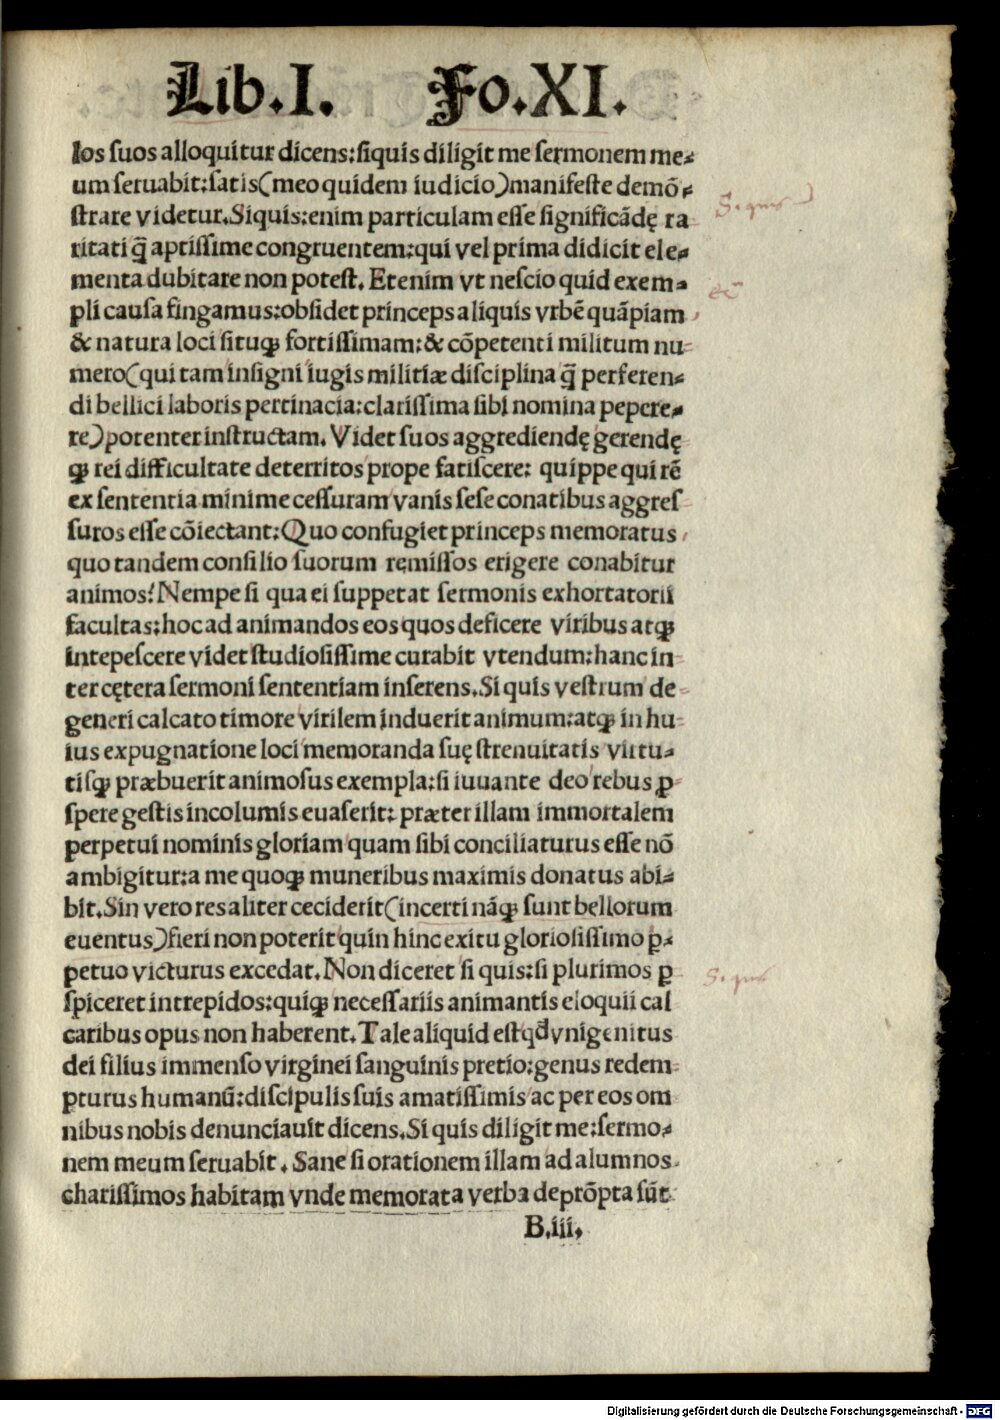 Lib.I. Fo.XI.
los suos alloquitur dicens:siquis diligit me sermonem me-
um seruabit:satis(meo quidem iudicio)manifeste demõ-
strare videtur.Siquis:enim particulam esse significãdę ra
ritati q̃ aptissime congruentem:qui vel prima didicit ele-
menta dubitare non potest. Etenim vt nescio quid exem-
pli causa fingamus:obsidet princeps aliquis vrbẽ quãpiam
& natura loci situqꝫ fortissimam:& cõpetenti militum nu-
mero(qui tam insigni iugis militiæ disciplina q̃ perferen-
di bellici laboris pertinacia:clarissima sibi nomina pepere-
re)potenter instructam. Videt suos aggrediendę gerendę
qꝫ rei difficultate deterritos prope fatiscere: quippe qui rẽ
ex sententia minime cessuram vanis sese conatibus aggres
suros esse cõiectant:Quo confugiet princeps memoratus
quo tandem consilio suorum remissos erigere conabitur
animos? Nempe si qua ei suppetat sermonis exhortatorii
facultas:hoc ad animandos eos quos deficere viribus atqꝫ
intepescere videt studiosissime curabit vtendum:hanc in-
ter cętera sermoni sententiam inserens.Si quis vestrum de-
generi calcato timore virilem induerit animum:atqꝫ in hu-
ius expugnatione loci memoranda suę strenuitatis virtu-
tisqꝫ præbuerit animosus exempla:si iuuante deo rebus ꝓ-
spere gestis incolumis euaserit: præter illam immortalem
perpetui nominis gloriam quam sibi conciliaturus esse nõ
ambigitur:a me quoqꝫ muneribus maximis donatus abi-
bit.Sin vero res aliter ceciderit(incerti nãqꝫ sunt bellorum
euentus)fieri non poterit quin hinc exitu gloriosissimo ꝑ-
petuo victurus excedat.Non diceret si quis:si plurimos ꝓ
spiceret intrepidos:quiqꝫ necessariis animantis eloquii cal
caribus opus non haberent.Tale aliquid est qd̃ vnigenitus
dei filius immenso virginei sanguinis pretio:genus redem-
pturus humanũ:discipulis suis amatissimis ac per eos om
nibus nobis denunciauit dicens.Si quis diligit me:sermo-
nem meum seruabit. Sane si orationem illam ad alumnos
charissimos habitam vnde memorata verba deprõpta sũt
B.iii.
Siquis
Siquis
Digitalisierung gefördert durch die Deutsche Forschungsgemeinschaft - DFG